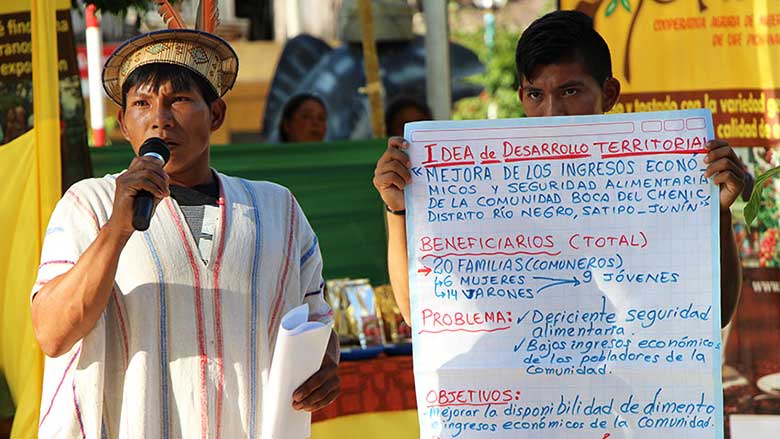 fino
ranos
exporron
COOPERATIVA AGRARIA DE
DE CAFÉ
y tostado con la variedad
calidad de
IDEA de DESARROLLO TERRITORIAL
"MEJORA DE LOS INGRESOS ECONÓ-
MICOS Y SEGURIDAD ALIMENTARIA
DE LA COMUNIDAD BOCA DEL CHENIC,
DISTRITO RÍO NEGRO, SATIPO-JUNÍN"
BENEFICIARIOS (TOTAL)
→ 20 FAMILIAS (COMUNEROS)
↳ 6 MUJERES → 9 JÓVENES
↳ 14 VARONES
PROBLEMA: ✓ Deficiente seguridad
alimentaria.
✓ Bajos ingresos económicos
de los pobladores de la
comunidad.
OBJETIVOS:
-Mejorar la disponibilidad de alimento
e ingresos económicos de la comunidad.